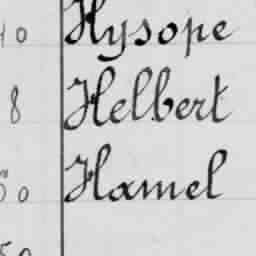 40 Hysope
8 Helbert
60 Hamel
50